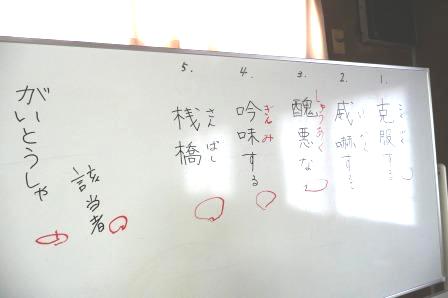 1.
克服する
こくふく
2.
威嚇する
いかく
3.
醜悪な
しゅうあく
4.
吟味する
ぎんみ
5.
桟橋
さんばし
該当者
がいとうしゃ